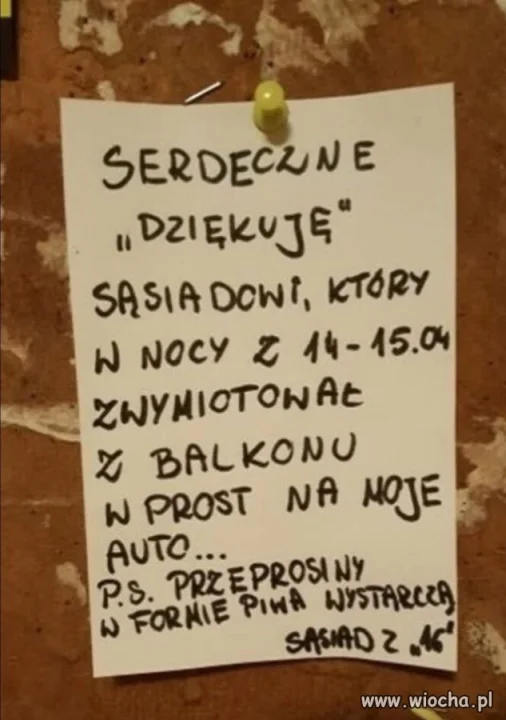 SERDECZNE
„DZIĘKUJĘ"
SĄSIADOWI, KTÓRY
W NOCY Z 14-15.04
ZWYMIOTOWAŁ
Z BALKONU
W PROST NA MOJE
AUTO...
P.S. PRZEPROSINY
W FORMIE PIWA WYSTARCZĄ
SĄSIAD Z „16"
www.wiocha.pl